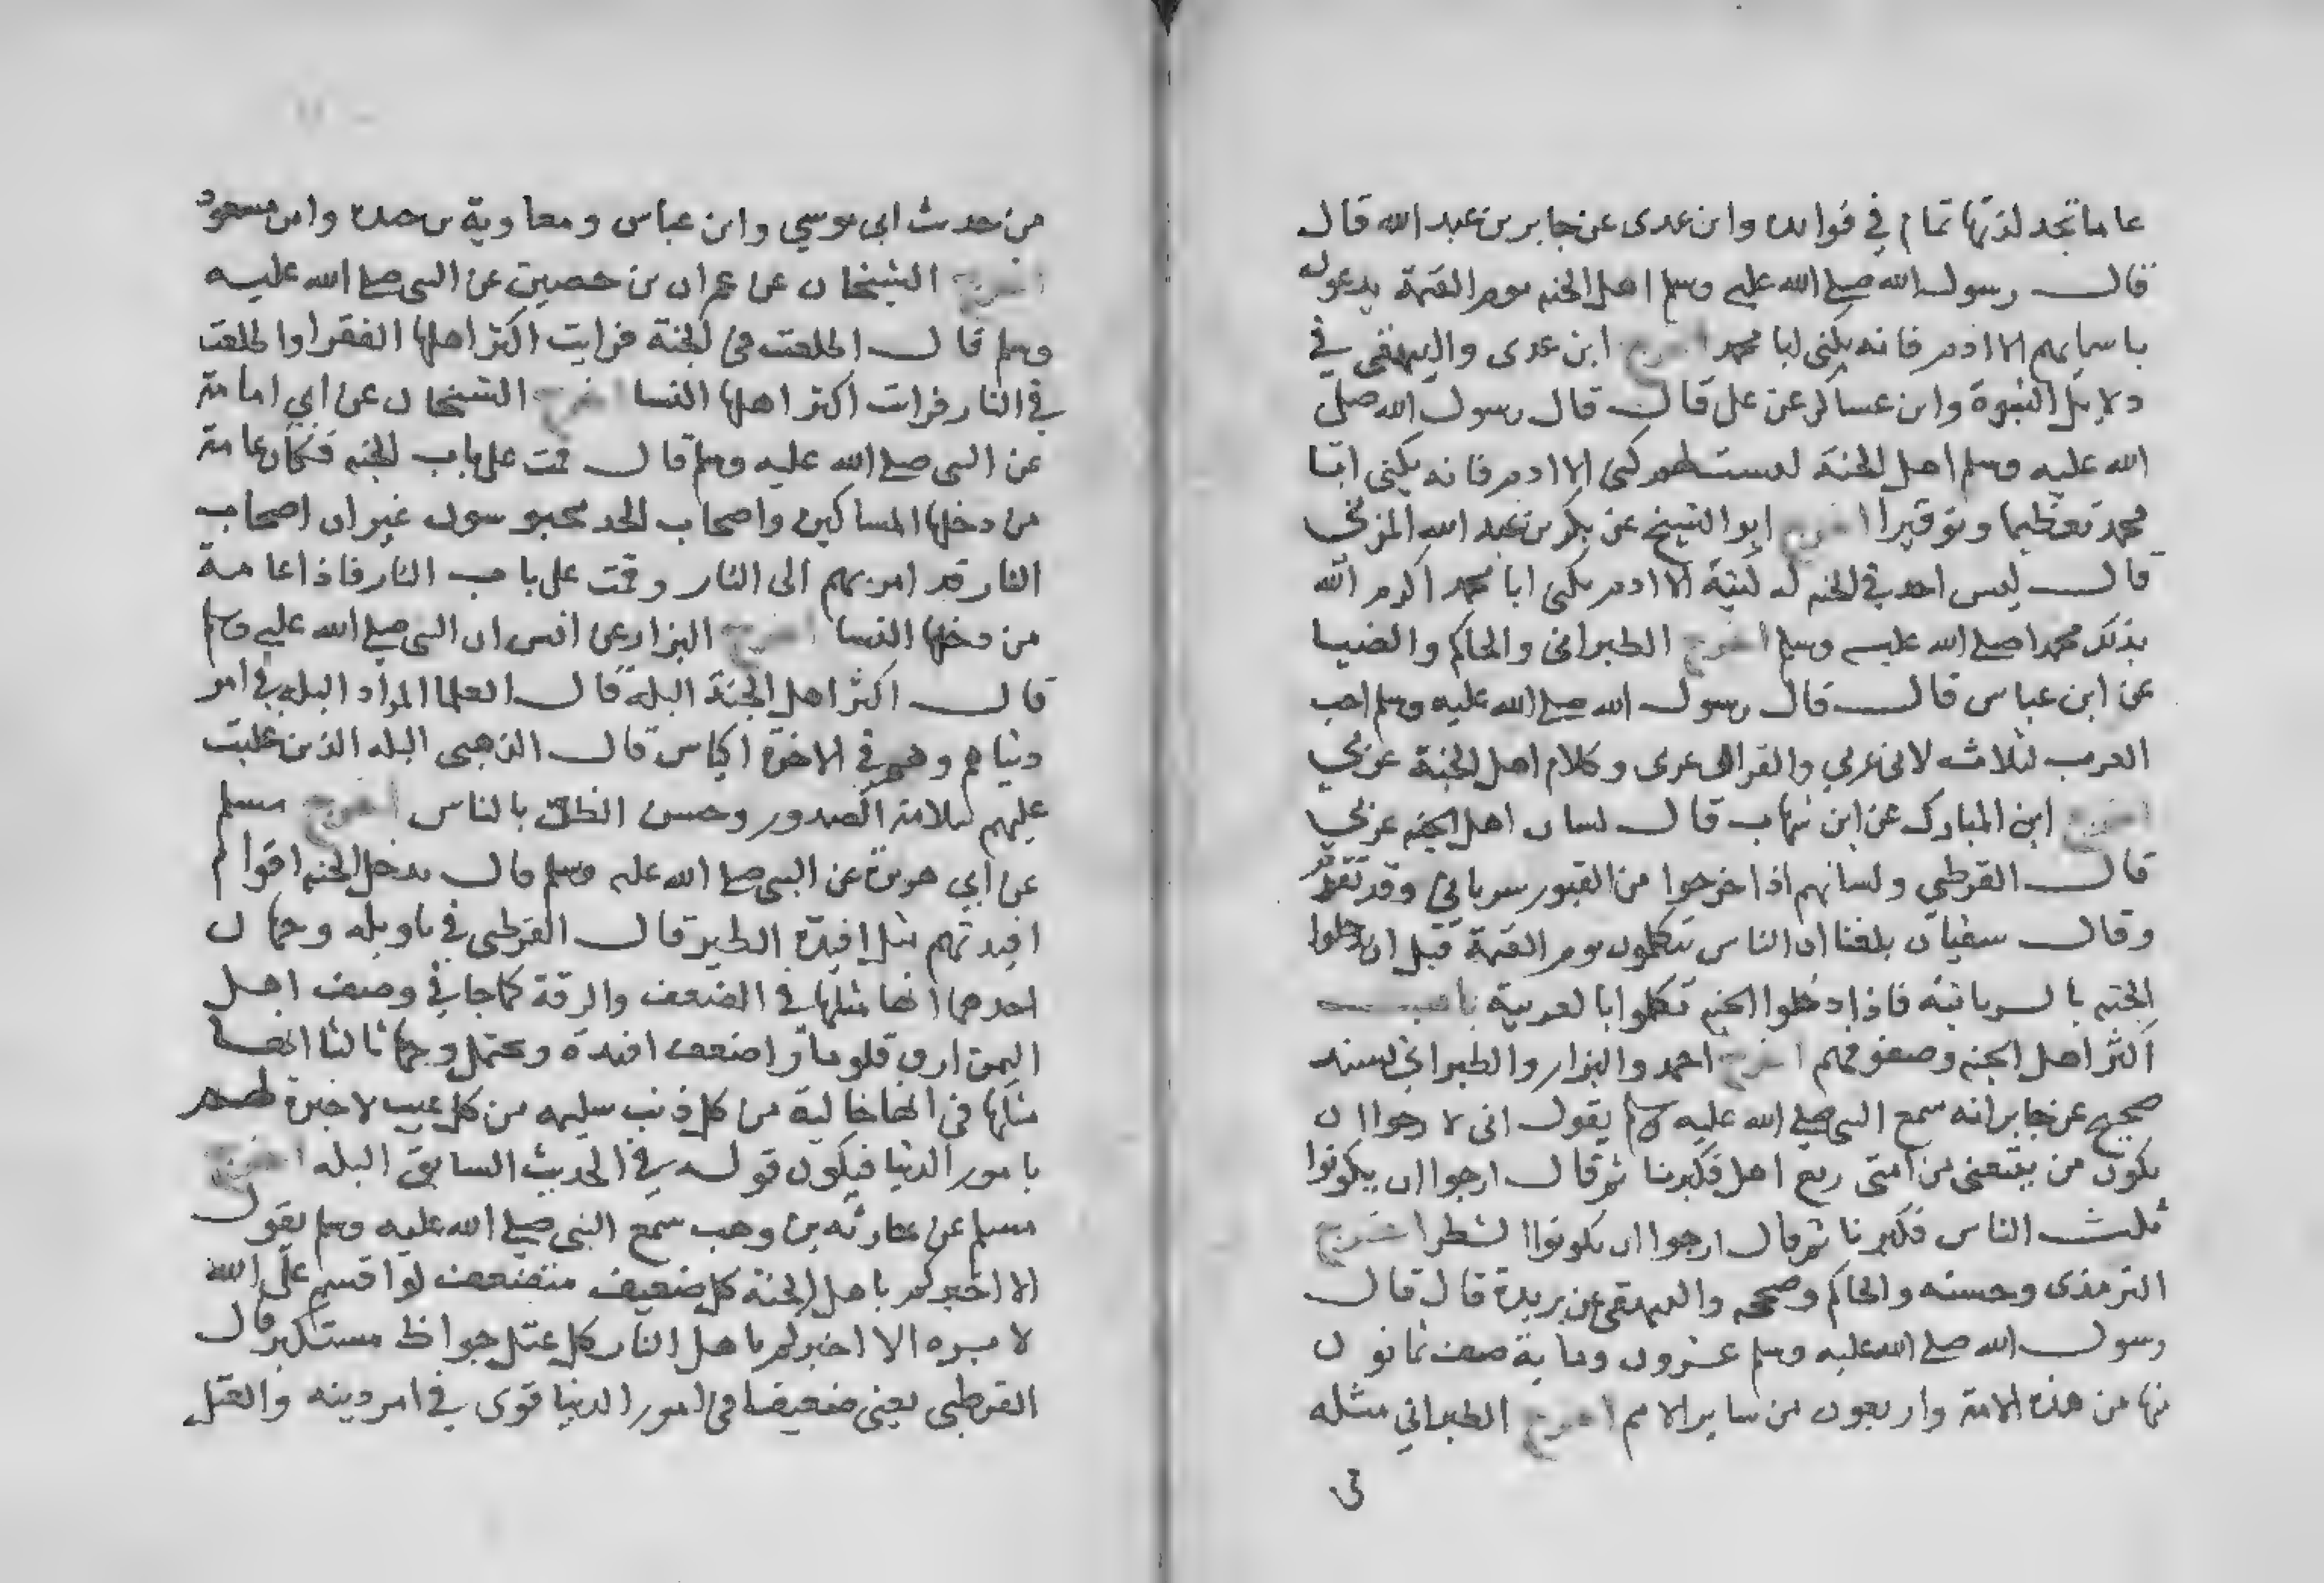 عاما تجد لذتها تمام في فوايده وابن عدى عن جابر بن عبد الله قال
قال رسول الله صلى الله عليه وسلم اهل الجنه يوم القيمة يدعون
باسمايهم الا ادم فانه يكنى ابا محمد اخرج ابن عدى والبيهقى في
دلايل النبوة وابن عساكر عن على قال قال رسول الله صلى
الله عليه وسلم اهل الجنة ليست لهم كنى الا ادم فانه يكنى ابا
محمد تعظيما وتوقيرا اخرج ابو الشيخ عن بكر بن عبد الله المزني
قال ليس احد في الجنه له كنية الا ادم يكنى ابا محمد اكرم الله
بذلك محمدا صلى الله عليه وسلم اخرج الطبرانى والحاكم والضيا
عن ابن عباس قال قال رسول الله صلى الله عليه وسلم احب
العرب لثلاث لانى عربي والقران عربى وكلام اهل الجنة عربي
اخرج ابن المبارك عن ابن شهاب قال لسان اهل الجنه عربي
قال القرطبي ولسانهم اذا خرجوا من القبور سرياني وقد تقدم
وقال سفيان بلغنا ان الناس يتكلمون يوم القيمة قبل ان يدخلوا
الجنه بالسريانية فاذا دخلوا الجنه تكلموا بالعربية باب
اكثر اهل الجنه وصفوفهم اخرج احمد والبزار والطبراني بسند
صحيح عن جابر انه سمع النبي صلى الله عليه وسلم يقول انى لارجوا ان
يكون من يتبعنى من امتى ربع اهل فكبرنا ثم قال ارجوا ان يكونوا
ثلث الناس فكبرنا ثم قال ارجوا ان يكونوا الشطر اخرج
الترمذى وحسنه والحاكم وصححه والبيهقى عن بريدة قال قال
رسول الله صلى الله عليه وسلم عشرون وماية صف ثمانون
منها من هذه الامة واربعون من ساير الامم اخرج الطبراني مثله
من حديث ابى موسي وابن عباس ومعاوية بن حيدة وابن مسعود
اخرج الشيخان عن عمران بن حصين عن النبى صلى الله عليه
وسلم قال اطلعت في الجنة فرايت اكثر اهلها الفقرا واطلعت
في النار فرايت اكثر اهلها النسا اخرج الشيخان عن ابي امامة
عن النبى صلى الله عليه وسلم قال قمت على باب الجنه فكان عامة
من دخلها المساكين واصحاب الجد محبوسون غير ان اصحاب
النار قد امر بهم الى النار وقمت على باب النار فاذا عامة
من دخلها النسا اخرج البزار عن انس ان النبى صلى الله عليه وسلم
قال اكثر اهل الجنة البله قال العلما المراد البله في امر
دنياهم وهم في الاخرة اكياس قال الذهبى البله الذين غلبت
عليهم سلامة الصدور وحسن الظن بالناس اخرج مسلم
عن ابي هريرة عن النبى صلى الله عليه وسلم قال يدخل الجنه اقوام
افيدتهم مثل افيدة الطير قال القرطبى في تاويله وجهان
احدهما انها مثلها في الضعف والرقة كما جا في وصف اهل
اليمن ارق قلوبا واضعف افيدة ويحتمل وجها ثالثا انها
مثلها في انها خالية من كل ذنب سليمه من كل عيب لا خبرة لهم
بامور الدنيا فيكون قوله في الحديث السابق البله اخرج
مسلم عن حارثه بن وهب سمع النبى صلى الله عليه وسلم يقول
الا اخبركم باهل الجنة كل ضعيف متضعف لو اقسم على الله
لا بره الا اخبركم باهل النار كل عتل جواظ مستكبر قال
القرطبى يعنى ضعيفا في امور الدنيا قوى في امر دينه والعتل